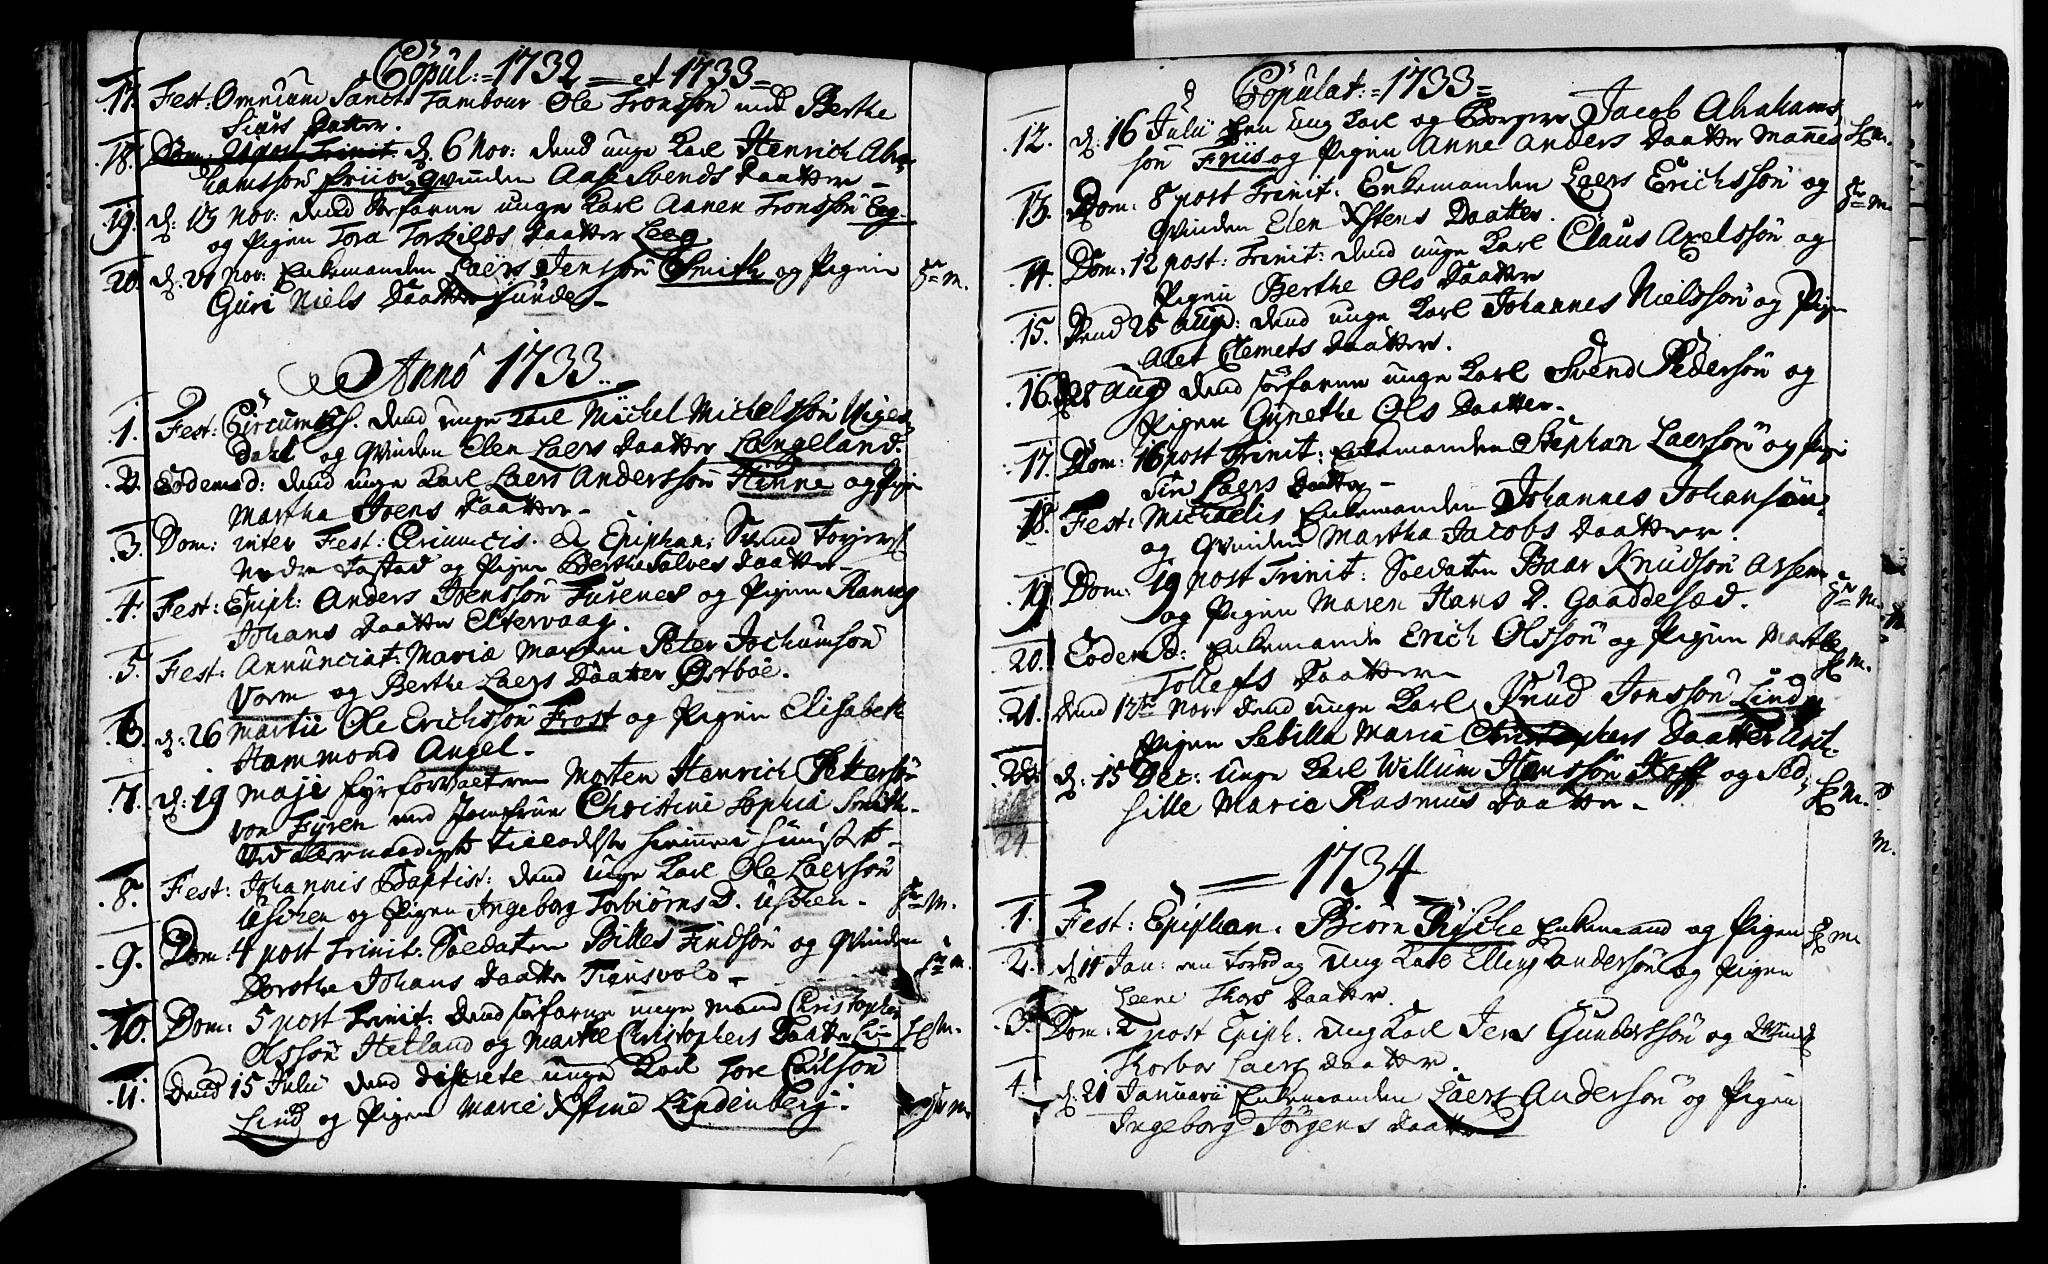 Copul: 1732 et 1733
17. Fest: Omnium Sanct: Tambour Ole Tronssøn med Berthe
Siurs Daatter.
18. Dom: 21 post Trinit. d. 6 Nov: dend unge Karl Henrich Abra-
hamssøn Friis og Qvinden Aase Svends Daatter
19. d. 13 Nov: dend Søfarne unge Karl Aanen Tronssøn Eeg
og Pigen Tora Torkilds Daatter Leeg
20. d. 21 Nov: Enkemanden Laers Jenssøn Smith og Pigen
Guri Niels Daatter Sunde
Anno 1733.
1. Fest: Circumcis. dend unge Karl Michel Michelssøn
Dahl og Qvinden Elen Laers Daatter Langeland.
2. Eodem d: dend unge Karl Laers Anderssøn Hinne og Pigen
Martha Joens Daatter
3. Dom: inter Fest: Circumcis. et Epiphan: Svend
Nedre Tastad og Pigen Berthe Salves Daatter
4. Fest: Epiph: Anders Joenssøn Furenes og Pigen Ranveg
Johans Daatter Eltervaag.
5. Fest: Annunciat: Mariæ Peter Jochumsøn
Vorm og Berthe Laers Daatter Østbøe.
6. d: 26 Martii Ole Erichssøn Frost og Pigen Elisabeth
Hammond Angel.
7. d: 19 Maji Fyrforvalteren Morten Henrich Peterssøn
von Fyren med Jomfrue Christine Sophia Smith
Ved allernaadigst tilladelse hiemme i Huuset
8. Fest: Johannis Baptist: dend unge Karl Ole Laerssøn
Uschen og Pigen Ingeborg Torbiørns D. Uschen.
9. Dom: 4 post Trinit: Soldaten Billes Findsøn og Qvinden
Dorothe Johans Daatter Tiensvold
10. Dom: 5 post Trinit: dend søfarne unge Mand Christopher
Olssøn Hetland og Marthe Christophers Daatter
11. Dend 15 Julii dend discrete unge Karl Tore Carlsøn
Lind og Pigen Marie Xstine Lindenberg.
Copulat: 1733
12. d: 16 Julii den ung Karl og Borger Jacob Abrahams
søn Friis og Pigen Anne Anders Daatter
13. Dom: 8 post Trinit: Enkemanden Laers Erichssøn og
Qvinden Elen Xstens Daatter.
14. Dom: 12 post: Trinit: dend unge Karl Claus Axelssøn og
Pigen Berthe Ols Daatter
15. Dend 25 Aug: dend unge Karl Johannes Nielssøn og Pigen
Alet Clemets Daatter.
16. d 28 Aug dend søfarne unge Karl Svend Pedersøn og
Pigen Gunethe Ols Daatter
17. Dom: 16 post Trinit: Enkemanden Stephan Laerssøn og Pigen
Siri Laers Daatter
18. Fest: Michaelis Enkemanden Johannes Johansøn
og Qvinden Martha Jacobs Daatter.
19. Dom: 19 post Trinit: Soldaten Baar Knudsøn
og Pigen Maren Hans D. Gaaddesæd.
20. Eodem D: Enkemanden Erich Olssøn og Pigen Marthe
Tollefs Daatter
21. Dend 12te Nov: dend unge Karl Knud Jonssøn Lind og
Pigen Sebilla Maria Christophers Daatter
d: 15 Dec: unge Karl Willum Hanssøn Hoff og Sid-
sille Marie Rasmus Daatter
24
1734
1. Fest: Epiphan. Biørn Rysche Enkemand og Pigen
2. d 14 Jan: ung Karl Elling Anderssøn og Pigen
Leene Thors Daatter.
3. Dom: 2 post Epiph. ung Karl Jens Gunderssøn og Qvind
Thorbor Laers Daatter.
4. d. 21 Januarii Enkemanden Laers Anderssøn og Pigen
Ingeborg Jørgens Daatter